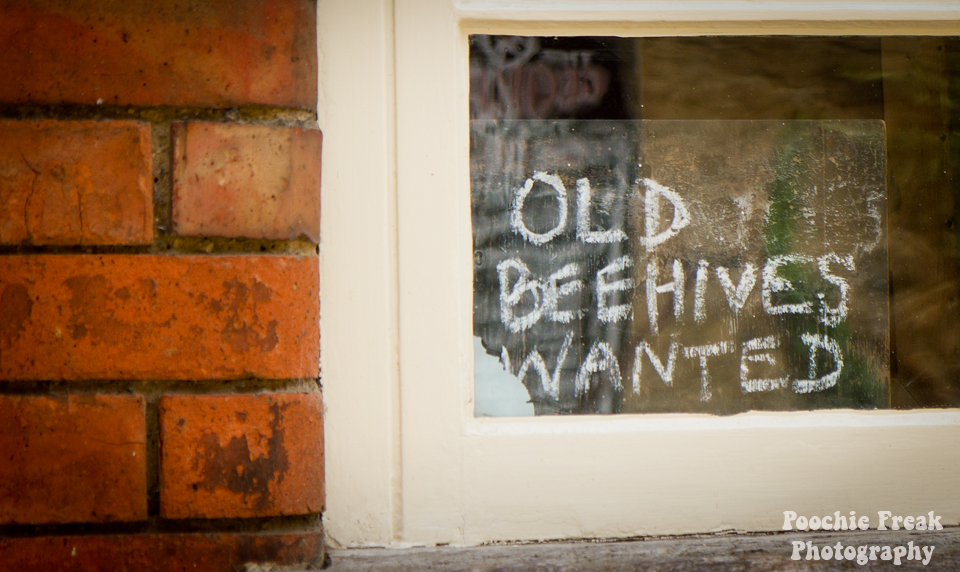 OLD
BEEHIVES
WANTED
Poochie Freak
Photography